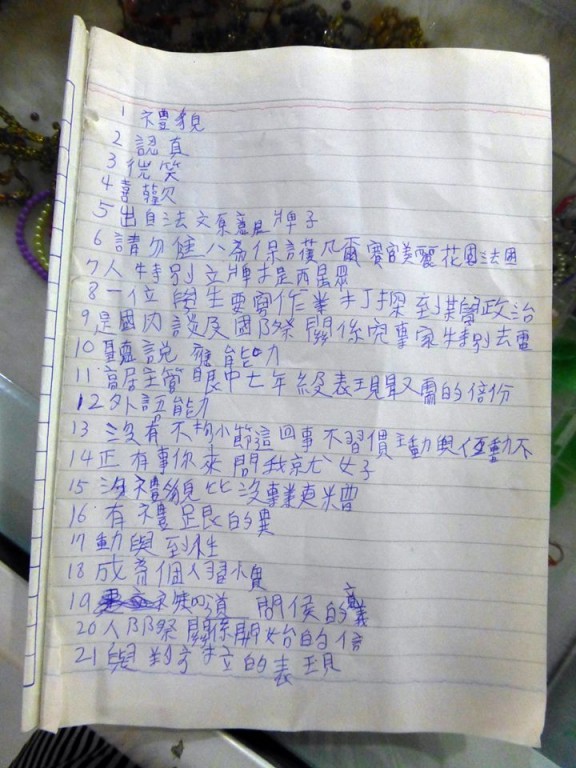 1 禮貌
2 認真
3 微笑
4 喜歡
5 出自法文原意是牌子
6 請勿 保護凡爾賽宮美麗花園法國
7 人特別立牌提
8 一位學生要寫作業打探到某篇政治
9 是國內談及國際關係究專家特別去電
10 聽說 應能力
11 高層主管眼中七年級表現最需的倍份
12 外語能力
13 沒有不拘小節這回事不習慣主動與 動不
14 正 有事你來問我就 女子
15 沒禮貌比沒專業更糟
16 有禮 的異
17 動與 性
18 成 個人習
19 知道 問候的意義
20 人際關係開始的倍
21 與對方 立的表現